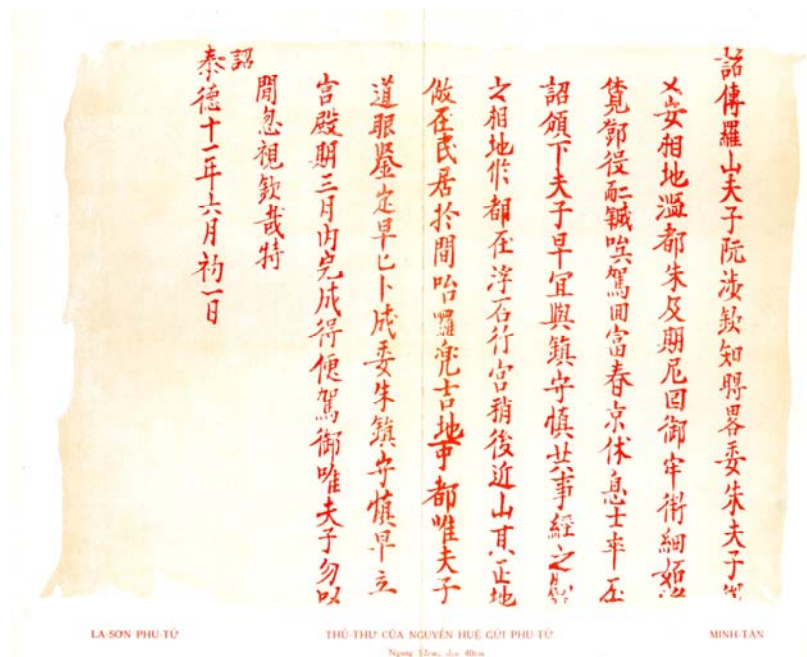 詔傳羅山夫子阮浹欽知畧委朱夫子
乂安相地濫都朱及期尼回御牢衛細
覓鄧役駕回富春京休息士卒
詔頒下夫子早宜與鎮守慎共事經之營
之相地作都在浮石行宮稍後近山其正地
倣在民居於間咍羅兜吉地可都唯夫子
道眼鑒定早匕卜成委朱鎮守慎早立
宮殿期三月內完成得便駕御唯夫子勿以
閒忽視欽哉特
詔
泰德十一年六月初一日
LA-SƠN PHU-TỬ
THỦ-THƯ CỦA NGUYỄN HUỆ GỬI PHU-TỬ
MINH-TÂN
Ngang 52cm, dọc 40cm